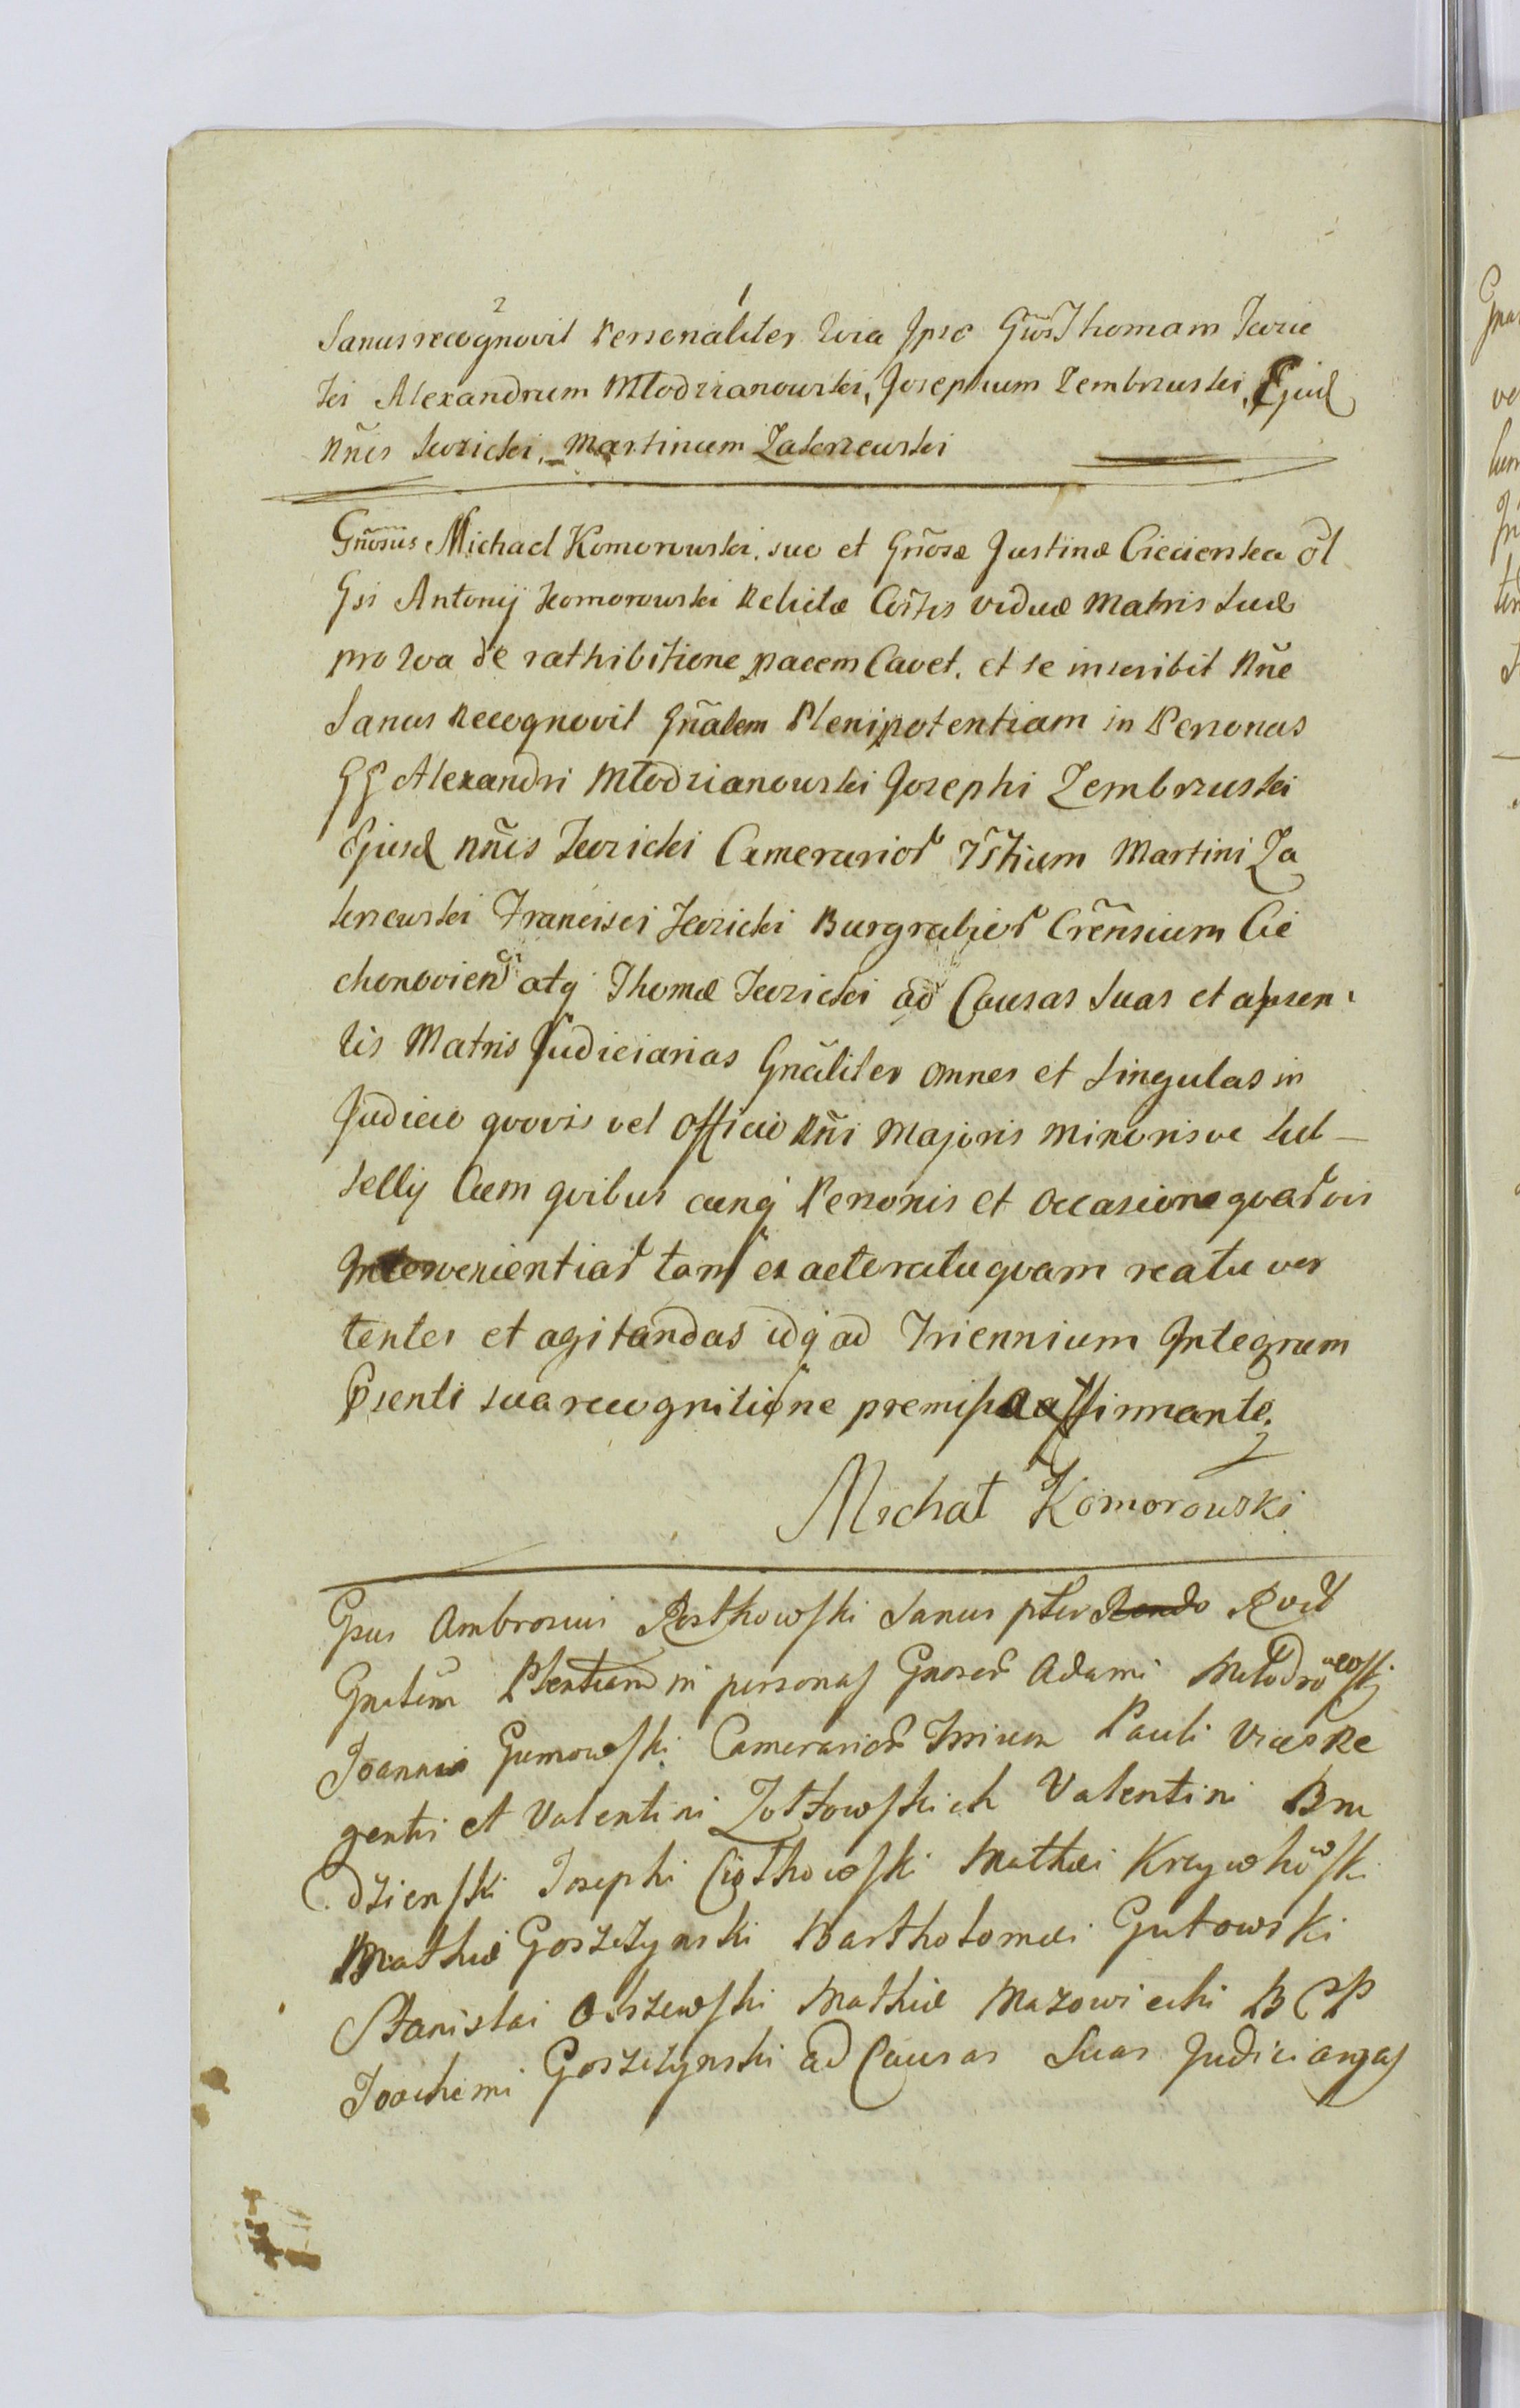 2 1
Sanus recognovit Personaliter Gñosû Thomam
ski Alexandrum Młodzianowski, Josephum Zembrzuski, Ejusd
Nñis Jezicki, Martinum Zakrzewski
Gñosus Michael Komorowski suo et Gñosæ Justinæ Ciecierska ol
Gsi Antonij Komorowski Relictæ Cortis viduæ Matris suæ
pro qva de rathibitione pacem Cavet, et se inscribit Nñe
Sanus Recognovit Gñalem Plenipotentiam in Personas
GG Alexandri Młodzianowski Josephi Zembrzuski
Ejusd Nñis Jezicki Camerarior Trium Martini Za
krzewski Francisci Jezicki Burgrabior Crensium Cie
chanovien atq Thomæ Jezicki ad Causas suas et absen
tis Matris Judiciarias Gñaliter omnes et singulas in
Judicio qvovis vel Officio Rñi Majoris minorisve sub
sellij Cum qvibus cunq Personis et occasione qvarvis
Intervenientiar tam ex acteratu qvam reatu ver
tentes et agitandas idq ad Triennium Integrum
Psenti sua recognitione premissa affirmante
Michał Komorowski
Gsus Ambrosius Rostkowski Sanus pter Rendo Rvit
Gnalem Plentiam in personas Gnosor Adami
Joannis Gumowski Camerarior Trium Pauli Vices Re
gentis et Valentini Zołtowskich Valentini Bru
dzienski Josephi Ciotkowski Mathæi Krzywkowski
Mathiæ Goszczynski Bartholomæi Gutowski
Stanislai Olszewski Mathiæ Mazowiecki B
Joachimi Goszczynski ad Causas Suas Judiciarias